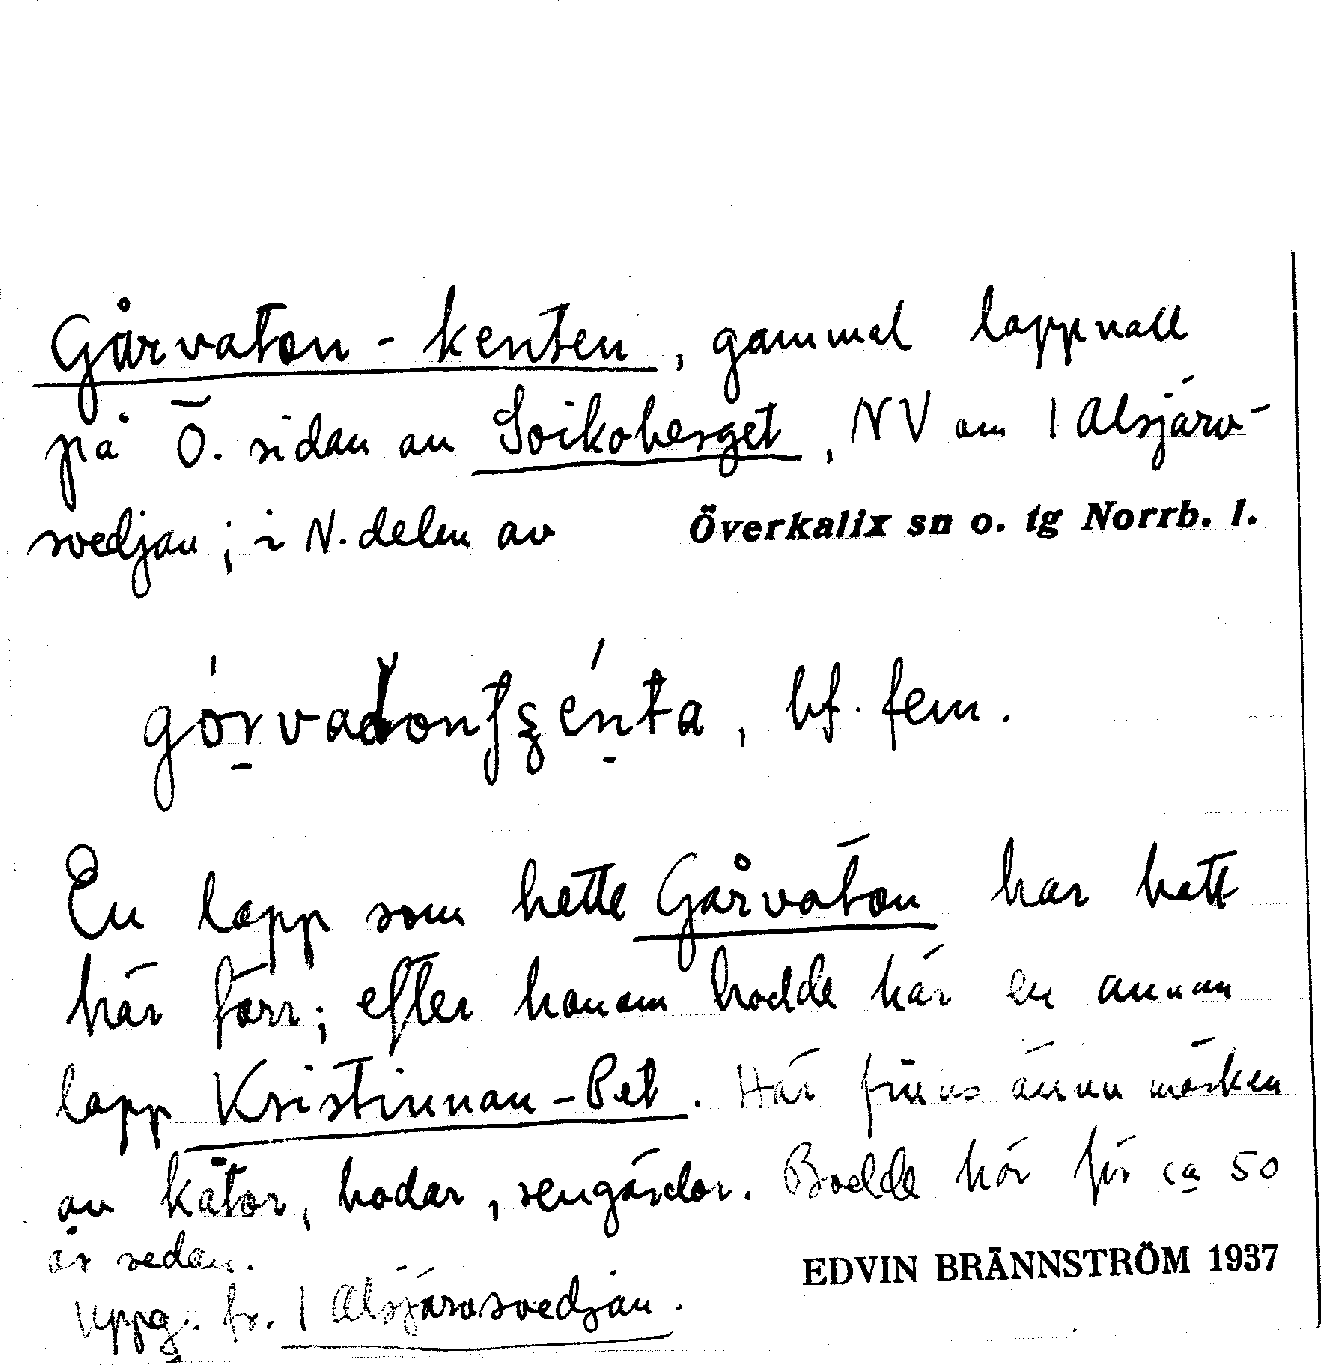 Gårvaton-kenten, gammal lappvall
på Ö. sidan av Soikoberget, NV om 1 Alsjärv-
svedjan; i N. delen av Överkalix sn o. tg Norrb. l.
bf. fem.
En lapp som hette Gårvaton har hatt
här förr; efter honom bodde här en annan
lapp Kristinnan-Pet. Här finns ännu märken
av kåtor, bodar, rengärdor. Bodde här för ca 50
år sedan.
EDVIN BRÄNNSTRÖM 1937
Uppg. fr. 1 Alsjärvsvedjan.